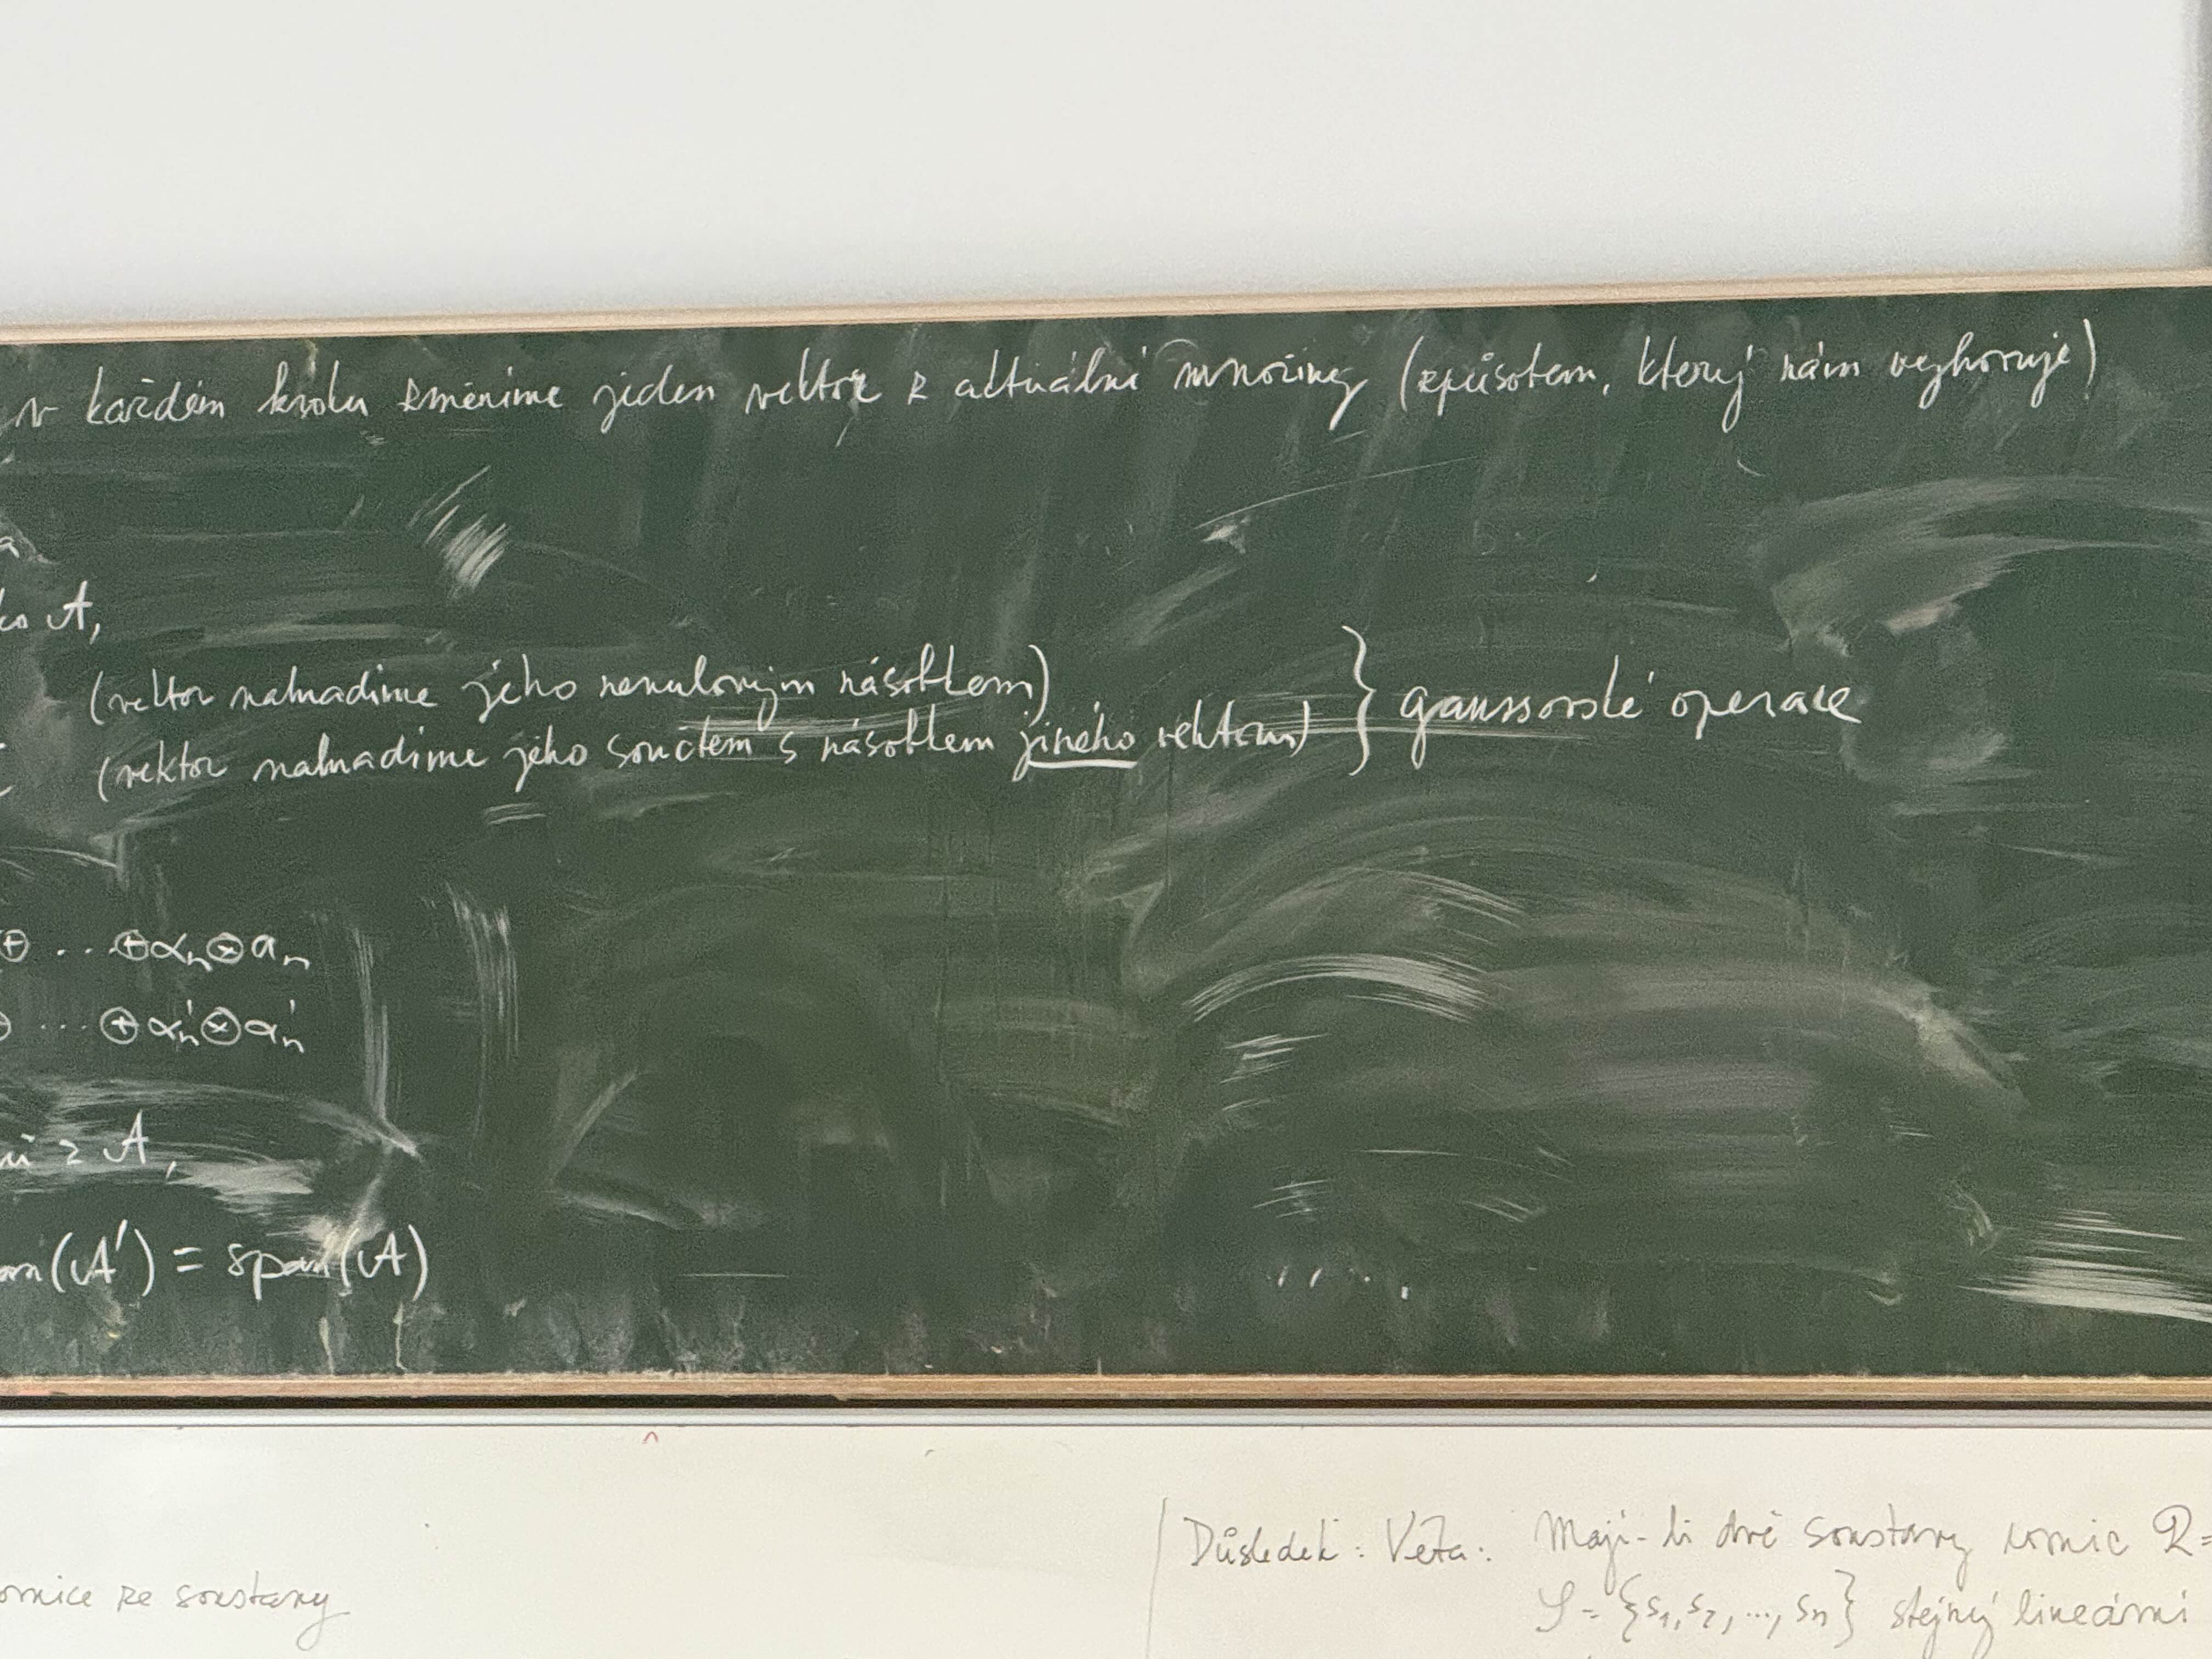 v každém kroku změníme jeden vektor z aktuální množiny (způsobem, který nám vyhovuje)
A,
(vektor nahradíme jeho nenulovým násobkem)
(vektor nahradíme jeho součtem s násobkem jiného vektoru) } gaussovské operace
⊕ ... ⊕ αn ⊗ an
... ⊕ α'n ⊗ a'n
z A,
(A') = span(A)
Důsledek: Věta: Mají-li dvě soustavy rovnic R =
ze soustavy
S = {s1, s2, ..., sn} stejný lineární